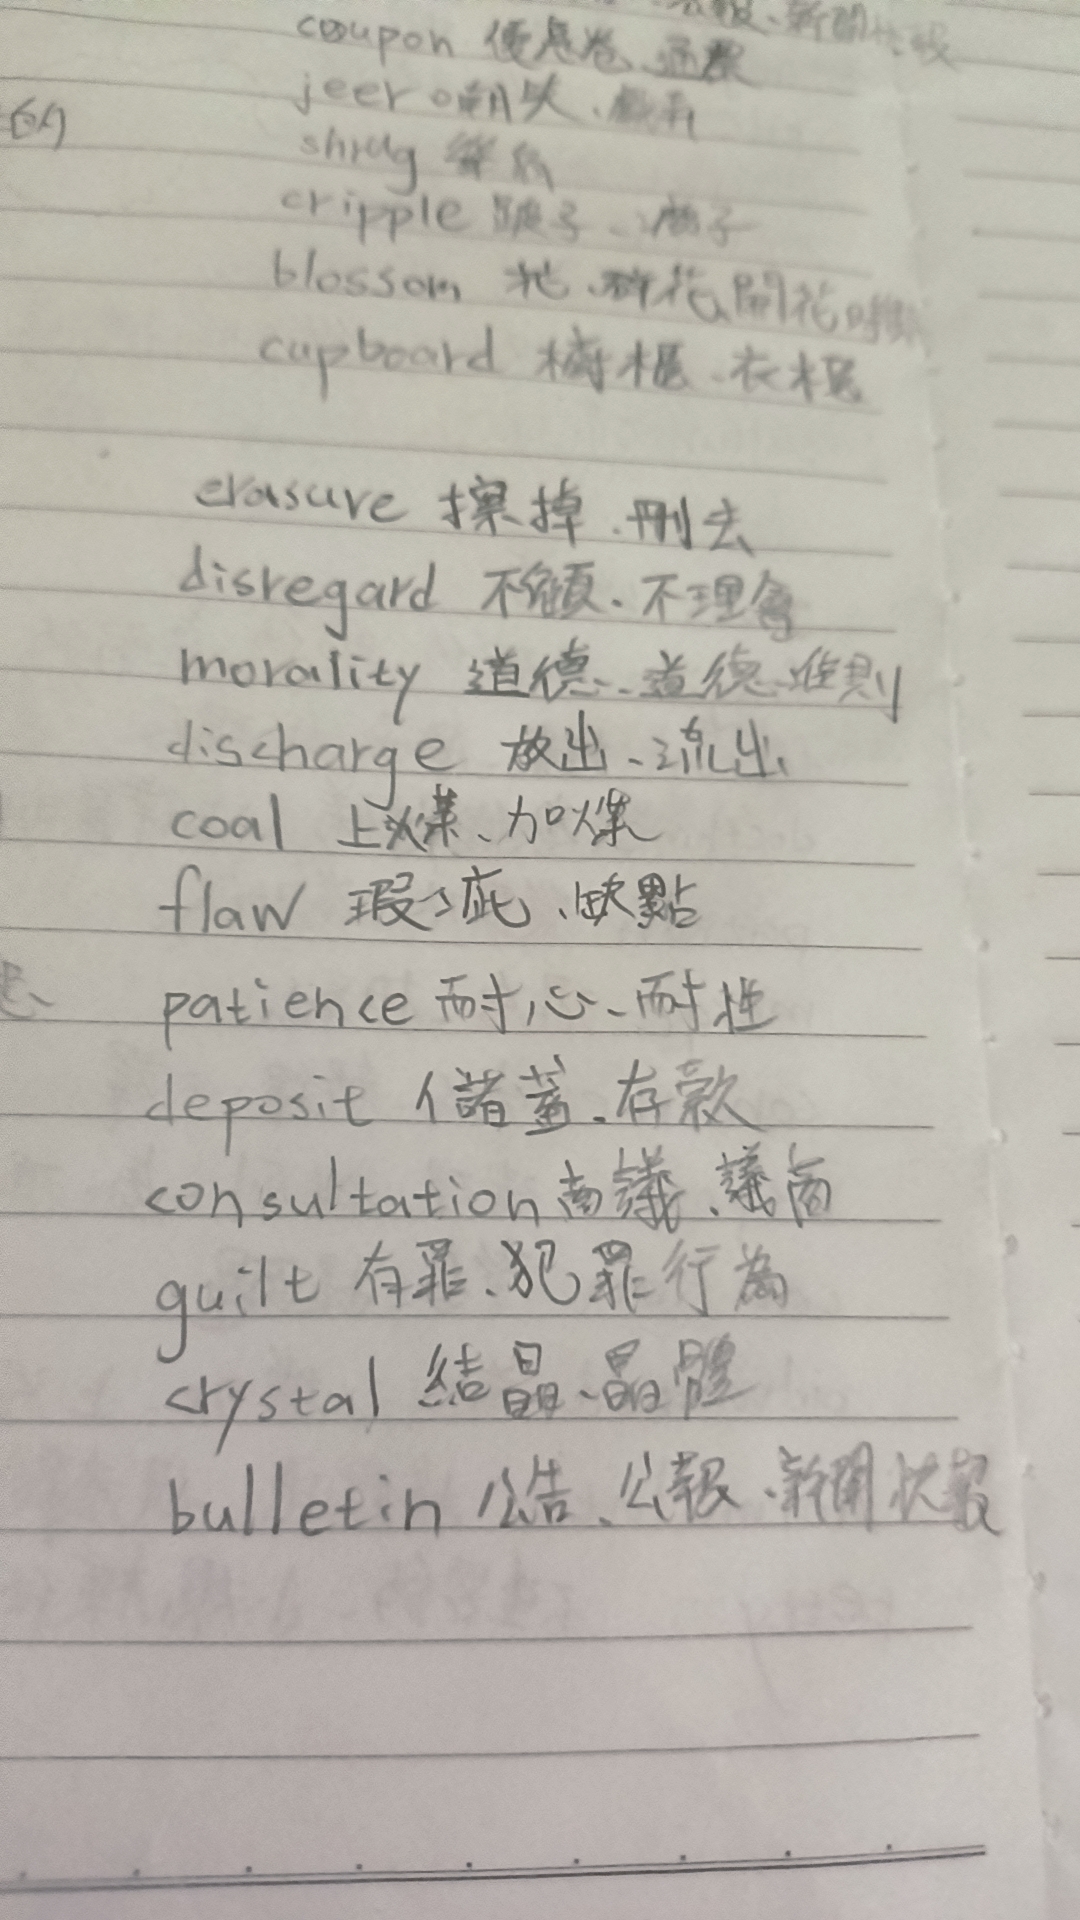 coupon
jeer 嘲笑
shrug 聳肩
cripple 跛子、瘸子
blossom 花、群花、開花
cupboard 櫥櫃、衣櫃
erasure 擦掉、刪去
disregard 不顧、不理會
morality 道德、道德準則
discharge 放出、流出
coal 上煤、加煤
flaw 瑕疵、缺點
patience 耐心、耐性
deposit 儲蓄、存款
consultation 商議、議商
guilt 有罪、犯罪行為
crystal 結晶、晶體
bulletin 公告、公報、新聞快報